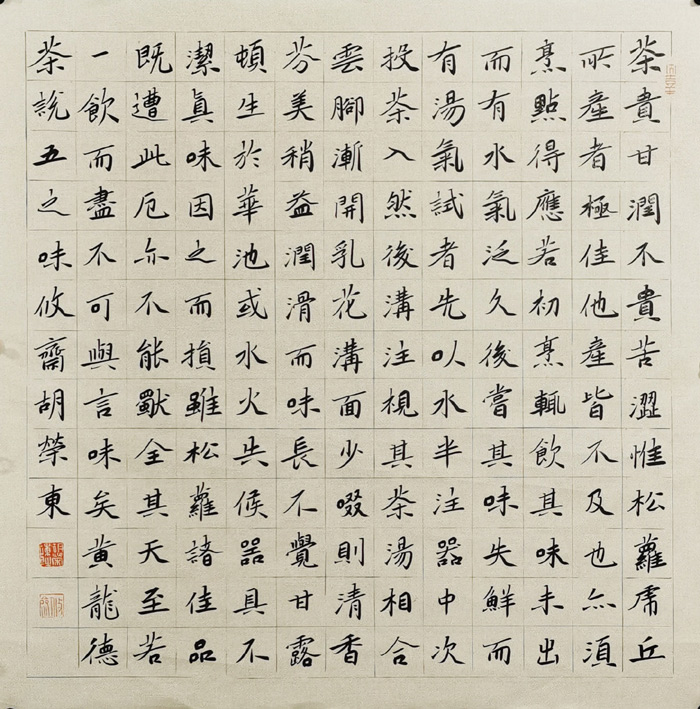 茶貴甘潤不貴苦澀惟松蘿虎丘
所產者極佳他產皆不及也亦須
烹點得應若初烹輒飲其味未出
而有水氣泛久後嘗其味失鮮而
有湯氣試者先以水半注器中次
投茶入然後溝注視其茶湯相合
雲腳漸開乳花溝面少啜則清香
芬美稍益潤滑而味長不覺甘露
頓生於華池或水火失候器具不
潔真味因之而損雖松蘿諸佳品
既遭此厄亦不能獸全其天至若
一飲而盡不可與言味矣黃龍德
茶說五之味攸齋胡榮東